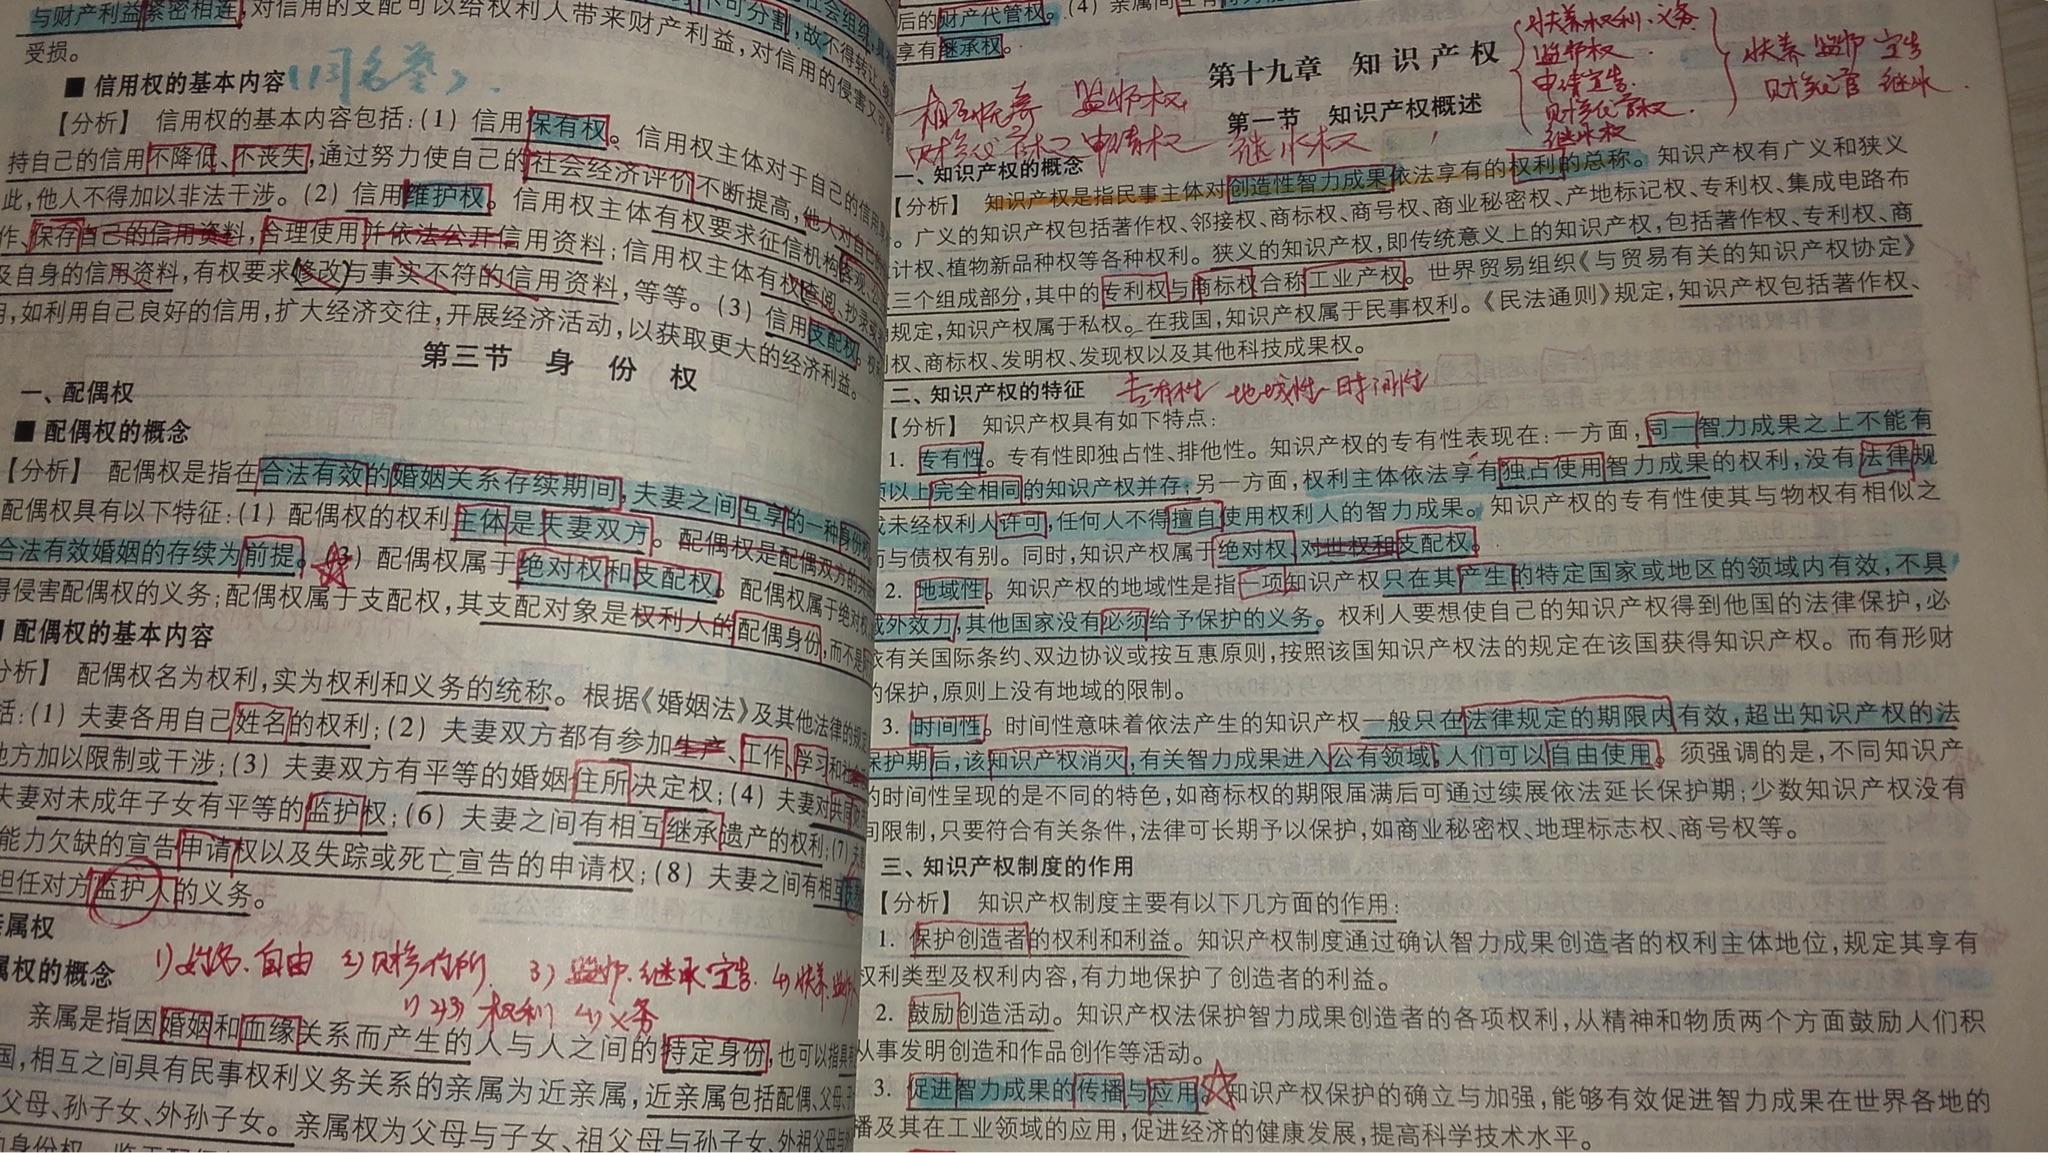 与财产利益紧密相连,对信用的支配可以给权利人带来财产利益,对信用的侵害又可能
不可分割,故不得转让
受损。
■ 信用权的基本内容(同名誉)
【分析】 信用权的基本内容包括:(1) 信用保有权。信用权主体对于自己的信用
持自己的信用不降低、不丧失,通过努力使自己的社会经济评价不断提高,他人对自己的信
此,他人不得加以非法干涉。(2) 信用维护权。信用权主体有权要求征信机构客观、公
作、保存自己的信用资料,合理使用并依法公开信用资料;信用权主体有权查阅、抄录或
及自身的信用资料,有权要求修改与事实不符的信用资料,等等。(3) 信用支配权。权
用,如利用自己良好的信用,扩大经济交往,开展经济活动,以获取更大的经济利益。
第三节 身份权
一、配偶权
■ 配偶权的概念
【分析】 配偶权是指在合法有效的婚姻关系存续期间,夫妻之间互享的一种身份权
配偶权具有以下特征:(1) 配偶权的权利主体是夫妻双方。配偶权是配偶双方的共
合法有效婚姻的存续为前提。(3) 配偶权属于绝对权和支配权。配偶权属于绝对权
得侵害配偶权的义务;配偶权属于支配权,其支配对象是权利人的配偶身份,而不是
配偶权的基本内容
分析】 配偶权名为权利,实为权利和义务的统称。根据《婚姻法》及其他法律的规定
括:(1) 夫妻各用自己姓名的权利;(2) 夫妻双方都有参加生产、工作、学习和社
他方加以限制或干涉;(3) 夫妻双方有平等的婚姻住所决定权;(4) 夫妻对共同
夫妻对未成年子女有平等的监护权;(6) 夫妻之间有相互继承遗产的权利;(7) 夫
能力欠缺的宣告申请权以及失踪或死亡宣告的申请权;(8) 夫妻之间有相互扶养
担任对方监护人的义务。
亲属权
1)姓名.自由 2)财产住所 3)监护.继承宣告. 4)扶养.监护
属权的概念
1)2)3)权利 4)义务
亲属是指因婚姻和血缘关系而产生的人与人之间的特定身份,也可以指具有
国,相互之间具有民事权利义务关系的亲属为近亲属,近亲属包括配偶、父母、子
父母、孙子女、外孙子女。亲属权为父母与子女、祖父母与孙子女、外祖父母与外
后的财产代管权。(4) 亲属间互有
享有继承权。
扶养权利、义务
监护权
申请宣告
财产代管权.
继承权
扶养 监护 宣告
财产代管 继承.
第十九章 知识产权
相互抚养 监护权
第一节 知识产权概述
财产代管权 申请权 继承权
一、知识产权的概念
【分析】 知识产权是指民事主体对创造性智力成果依法享有的权利的总称。知识产权有广义和狭义
。广义的知识产权包括著作权、邻接权、商标权、商号权、商业秘密权、产地标记权、专利权、集成电路布
计权、植物新品种权等各种权利。狭义的知识产权,即传统意义上的知识产权,包括著作权、专利权、商
三个组成部分,其中的专利权与商标权合称工业产权。世界贸易组织《与贸易有关的知识产权协定》
规定,知识产权属于私权。在我国,知识产权属于民事权利。《民法通则》规定,知识产权包括著作权、
利权、商标权、发明权、发现权以及其他科技成果权。
二、知识产权的特征 专有性 地域性 时间性
【分析】 知识产权具有如下特点:
1. 专有性。专有性即独占性、排他性。知识产权的专有性表现在:一方面,同一智力成果之上不能有
项以上完全相同的知识产权并存;另一方面,权利主体依法享有独占使用智力成果的权利,没有法律规
或未经权利人许可,任何人不得擅自使用权利人的智力成果。知识产权的专有性使其与物权有相似之
而与债权有别。同时,知识产权属于绝对权、对世权和支配权。
2. 地域性。知识产权的地域性是指一项知识产权只在其产生的特定国家或地区的领域内有效,不具
域外效力,其他国家没有必须给予保护的义务。权利人要想使自己的知识产权得到他国的法律保护,必
依有关国际条约、双边协议或按互惠原则,按照该国知识产权法的规定在该国获得知识产权。而有形财
的保护,原则上没有地域的限制。
3. 时间性。时间性意味着依法产生的知识产权一般只在法律规定的期限内有效,超出知识产权的法
保护期后,该知识产权消灭,有关智力成果进入公有领域,人们可以自由使用。须强调的是,不同知识产
的时间性呈现的是不同的特色,如商标权的期限届满后可通过续展依法延长保护期;少数知识产权没有
间限制,只要符合有关条件,法律可长期予以保护,如商业秘密权、地理标志权、商号权等。
三、知识产权制度的作用
【分析】 知识产权制度主要有以下几方面的作用:
1. 保护创造者的权利和利益。知识产权制度通过确认智力成果创造者的权利主体地位,规定其享有
权利类型及权利内容,有力地保护了创造者的利益。
2. 鼓励创造活动。知识产权法保护智力成果创造者的各项权利,从精神和物质两个方面鼓励人们积
从事发明创造和作品创作等活动。
3. 促进智力成果的传播与应用。知识产权保护的确立与加强,能够有效促进智力成果在世界各地的
播及其在工业领域的应用,促进经济的健康发展,提高科学技术水平。